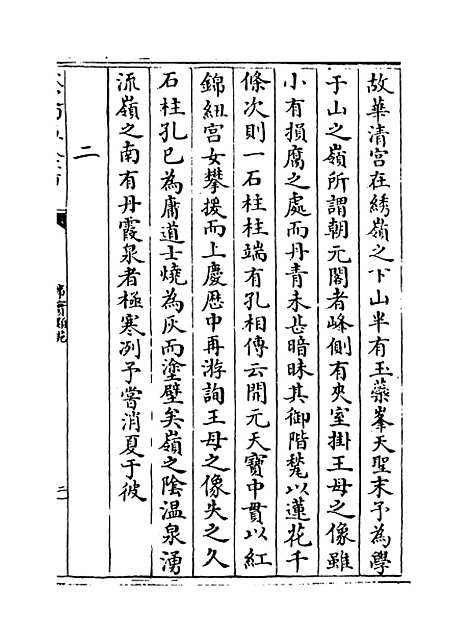 故華清宫在綉嶺之下山半有玉蘂峯天聖末予為學
于山之嶺所謂朝元閣者峰側有夾室掛王母之像雖
小有損腐之處而丹青未甚暗昧其御階甃以蓮花千
條次則一石柱柱端有孔相傳云開元天寳中貫以紅
錦紐宫女攀援而上慶厯中再游詢王母之像失之久
石柱孔已為庸道士燒為灰而塗壁矣嶺之隂温泉湧
流嶺之南有丹霞泉者極寒冽予嘗消夏于彼
二
事實類苑
二